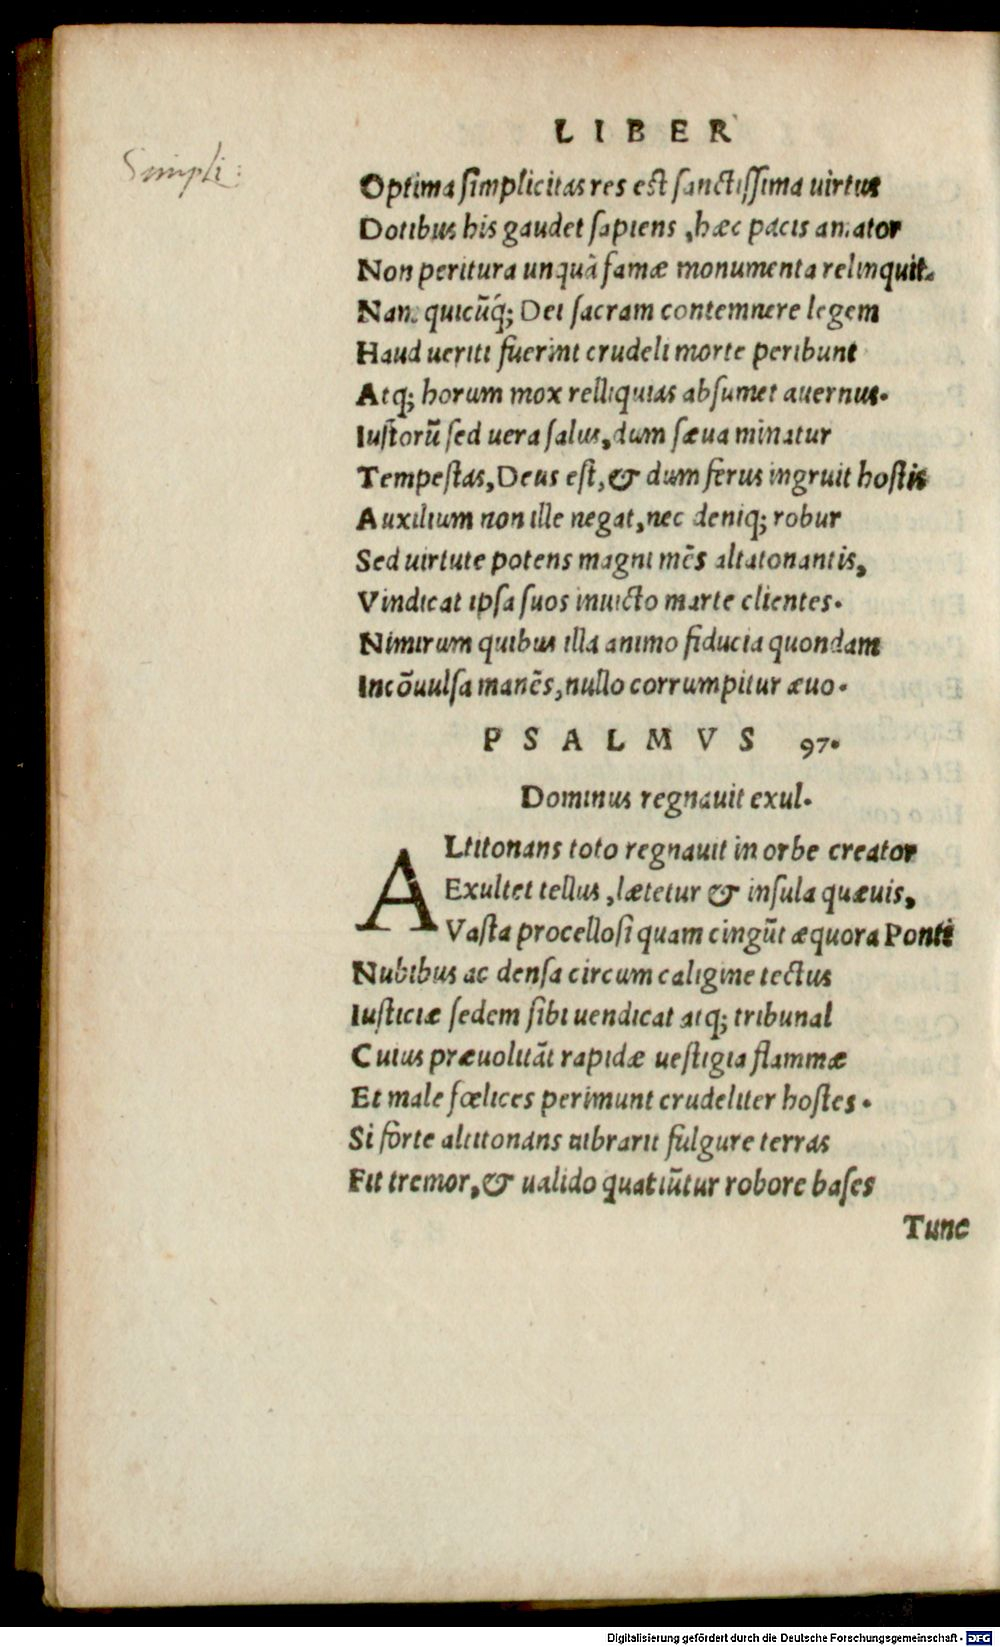 LIBER
Simpli:
Optima simplicitas res est sanctissima uirtus
Dotibus his gaudet sapiens, hæc pacis amator
Non peritura unquã famæ monumenta relinquit.
Nam quicũq́; Dei sacram contemnere legem
Haud ueriti fuerint crudeli morte peribunt
Atq; horum mox relliquias absumet auernus.
Iustorũ sed uera salus, dum sæua minatur
Tempestas, Deus est, & dum ferus ingruit hostis
Auxilium non ille negat, nec deniq; robur
Sed uirtute potens magni mẽs altatonantis,
Vindicat ipsa suos inuicto marte clientes.
Nimirum quibus illa animo fiducia quondam
Incõuulsa manẽs, nullo corrumpitur æuo.
PSALMVS 97.
Dominus regnauit exul.
ALtitonans toto regnauit in orbe creator
Exultet tellus, lætetur & insula quæuis,
Vasta procellosi quam cingũt æquora Ponti
Nubibus ac densa circum caligine tectus
Iusticiæ sedem sibi uendicat atq; tribunal
Cuius præuolitãt rapidæ uestigia flammæ
Et male fœlices perimunt crudeliter hostes.
Si forte altitonans uibrarit fulgure terras
Fit tremor, & ualido quatiũtur robore bases
Tunc
Digitalisierung gefördert durch die Deutsche Forschungsgemeinschaft - DFG